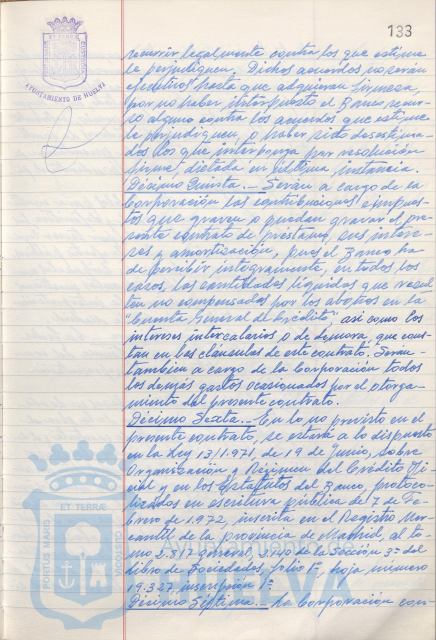 133
AYUNTAMIENTO DE HUELVA
recurrir legalmente contra los que estime
le perjudiquen. Dichos acuerdos no serán
efectivos hasta que adquieran firmeza,
por no haber interpuesto el Banco recur-
so alguno contra los acuerdos que estime
le perjudiquen, o haber sido desestima-
dos los que interponga por resolución
firme, dictada en última instancia.
Décimo Quinta.- Serán a cargo de la
Corporación las contribuciones e impues-
tos que graven o puedan gravar el pre-
sente contrato de préstamo, sus intere-
ses y amortización, pues el Banco ha
de percibir íntegramente, en todos los
casos, las cantidades líquidas que resul-
ten no compensadas por los abonos en la
"Cuenta General de Crédito" así como los
intereses intercalarios o de demora, que cons-
tan en las cláusulas de este contrato. Serán
también a cargo de la Corporación todos
los demás gastos ocasionados por el otorga-
miento del presente contrato.
Décimo Sexta.- En lo no previsto en el
presente contrato, se estará a lo dispuesto
en la Ley 13/1.971, de 19 de Junio, sobre
Organización y Régimen del Crédito Ofi-
cial y en los Estatutos del Banco, protoco-
lizados en escritura pública del 7 de Fe-
brero de 1.972, inscrita en el Registro Mer-
cantil de la provincia de Madrid, al to-
mo 2.817 general, de la Sección 3ª del
libro de Sociedades, folio 1º, hoja número
19.327, inscripción 1ª.
Décimo Séptima.- La Corporación con-
ET TERRÆ
PORTUS MARIS
CUSTODIO
HUELVA